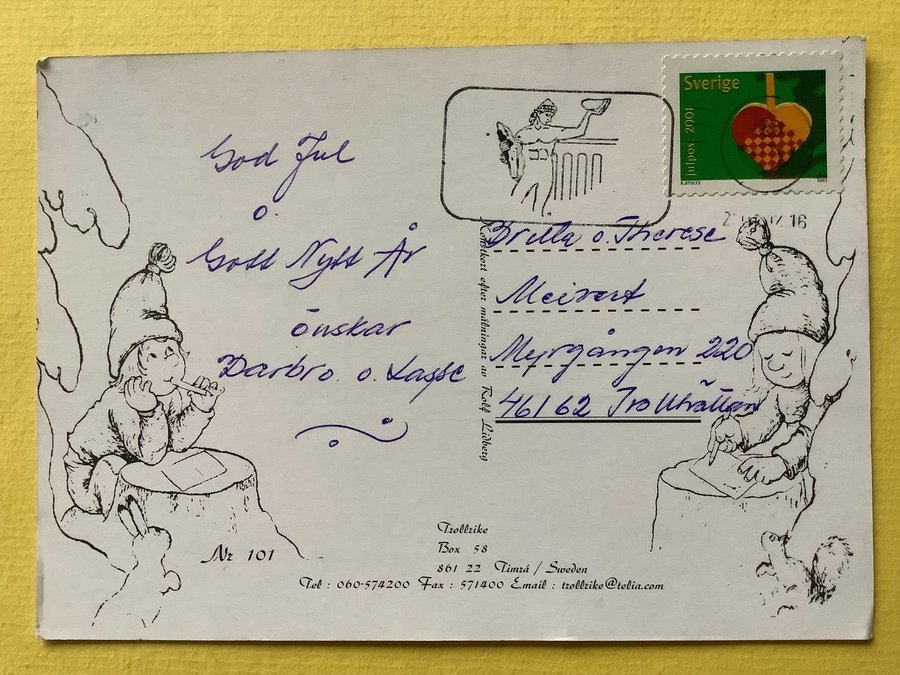 Sverige
julpost 2001
R.STOLTZ
2001
16
God Jul
o.
Gott Nytt År
önskar
Barbro o. Lasse
Britta o. Therese
Meivert
Myrgången 220
46162 Trollhättan
Konstkort efter målningar av Rolf Lidberg
Nr 101
Trollrike
Box 58
861 22 Timrå / Sweden
Tel : 060-574200 Fax : 571400 Email : trollrike@telia.com